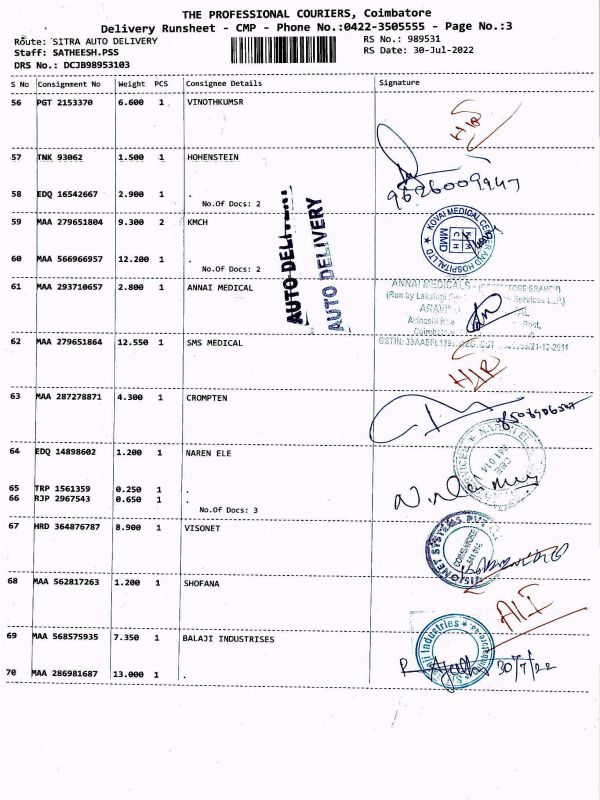 THE PROFESSIONAL COURIERS, Coimbatore
Delivery Runsheet - CMP - Phone No.:0422-3505555 - Page No.:3
Route: SITRA AUTO DELIVERY
RS No.: 989531
Staff: SATHEESH.PSS
RS Date: 30-Jul-2022
DRS No.: DCJB98953103
S No Consignment No Weight PCS Consignee Details Signature
56 PGT 2153370 6.600 1 VINOTHKUMSR
57 TNK 93062 1.500 1 HOHENSTEIN
58 EDQ 16542667 2.900 1 .
No.Of Docs: 2
59 MAA 279651804 9.300 2 KMCH
60 MAA 566966957 12.200 1 .
No.Of Docs: 2
AUTO DELIVERY
AUTO DELIVERY
MMD
KMCH
61 MAA 293710657 2.800 1 ANNAI MEDICAL
ANNAI MEDICALS
(Run by Lakshmi
62 MAA 279651864 12.550 1 SMS MEDICAL
63 MAA 287278871 4.300 1 CROMPTEN
64 EDQ 14898602 1.200 1 NAREN ELE
65 TRP 1561359 0.250 1 .
66 RJP 2967543 0.650 1 .
No.Of Docs: 3
67 HRD 364876787 8.900 1 VISONET
68 MAA 562817263 1.200 1 SHOFANA
69 MAA 568575935 7.350 1 BALAJI INDUSTRISES
70 MAA 286981687 13.000 1 .
30/7/22